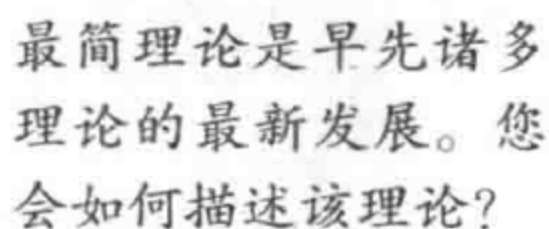 最简理论是早先诸多
理论的最新发展。您
会如何描述该理论?